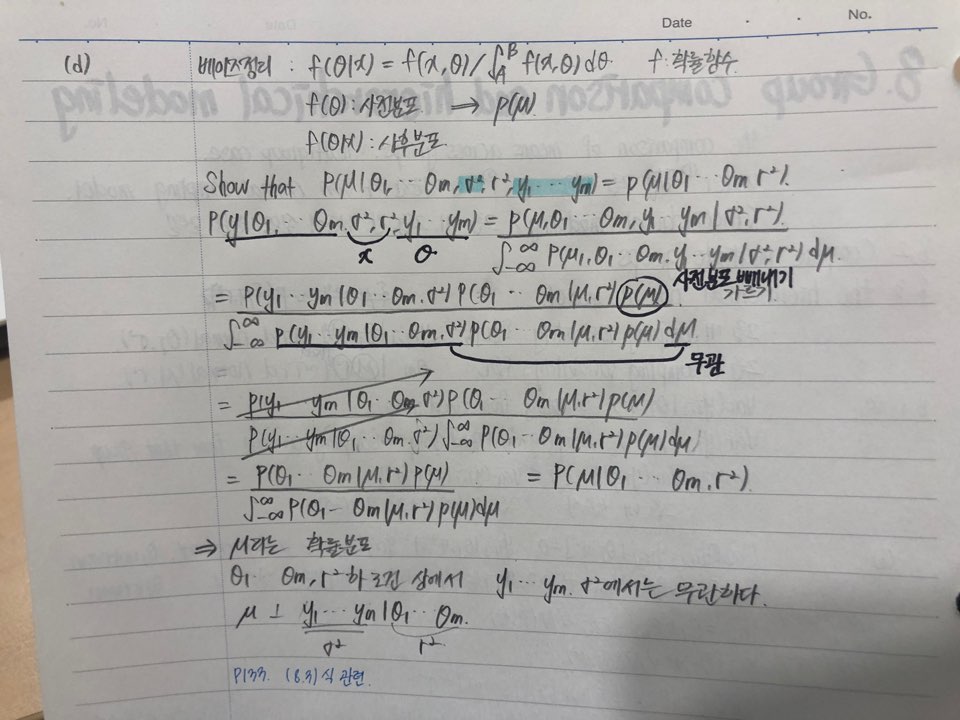 Date . . No.
(d) 베이즈정리 : f(θ|x) = f(x,θ) / ∫_A^B f(x,θ) dθ. f: 확률함수.
f(θ) : 사전분포 → p(μ).
f(θ|x) : 사후분포.
Show that P(μ|θ₁, ⋯ θm, σ², r², y₁ ⋯ ym) = p(μ|θ₁ ⋯ θm r²).
P(y|θ₁, ⋯ θm, σ², r², y₁ ⋯ ym) = p(μ,θ₁ ⋯ θm, y₁ ym | σ², r²).
x θ ∫_{-∞}^{∞} P(μ,θ₁ ⋯ θm. y₁ ⋯ ym | σ², r²) dμ.
사전분포 빼내기
가르기.
= P(y₁ ⋯ ym | θ₁ ⋯ θm. σ²) P(θ₁ ⋯ θm |μ, r²) p(μ)
∫_{-∞}^{∞} P(y₁ ⋯ ym | θ₁ ⋯ θm, σ²) p(θ₁ θm |μ, r²) p(μ) dμ
무관
=
= P(y₁ ym | θ₁ ⋯ θm σ²) P(θ₁ θm |μ, r²) p(μ)
P(y₁ ⋯ ym | θ₁ ⋯ θm. σ²) ∫_{-∞}^{∞} P(θ₁ ⋯ θm |μ, r²) p(μ) dμ)
= P(θ₁ ⋯ θm |μ, r²) p(μ) = P(μ|θ₁ ⋯ θm, r²).
∫_{-∞}^{∞} P(θ₁ ⋯ θm |μ, r²) p(μ) dμ
⇒ μ라는 확률분포
θ₁ θm, r² 하 조건 상에서 y₁ ⋯ ym. σ²에서는 무관하다.
μ ⊥ y₁ ⋯ ym | θ₁ ⋯ θm.
σ² r².
P133. (8.3) 식 관련.